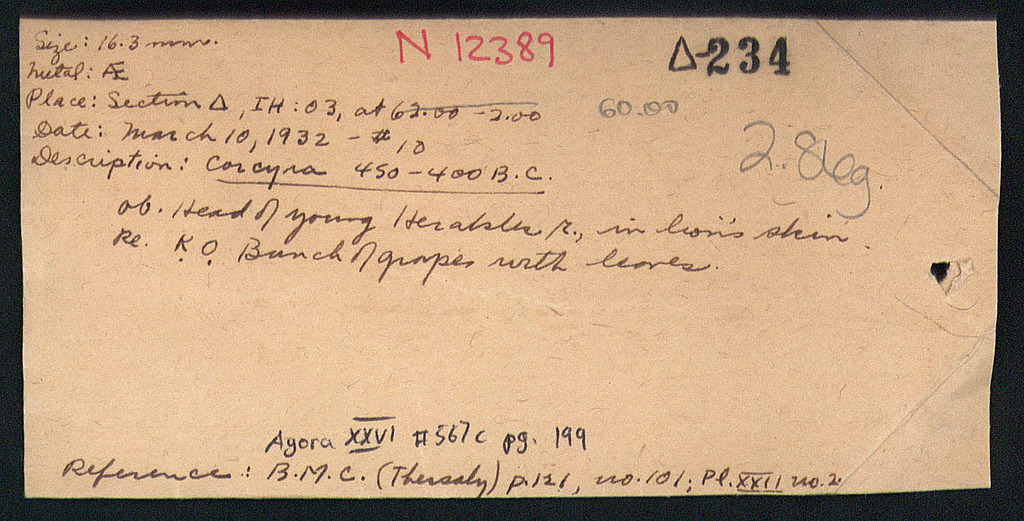 Size: 16.3 mm. N 12389 Δ-234
Metal: Æ
Place: Section Δ, IH:03, at 62.00 -2.00 60.00
Date: March 10, 1932 - #10 2.81eg.
Description: Corcyra 450-400 B.C.
ob. Head of young Herakles r., in lion's skin.
Re. K.O. Bunch of grapes with leaves.
Agora XXVI #567c pg. 199
Reference: B.M.C. (Thessaly) p.121, no.101; Pl.XXII no.2